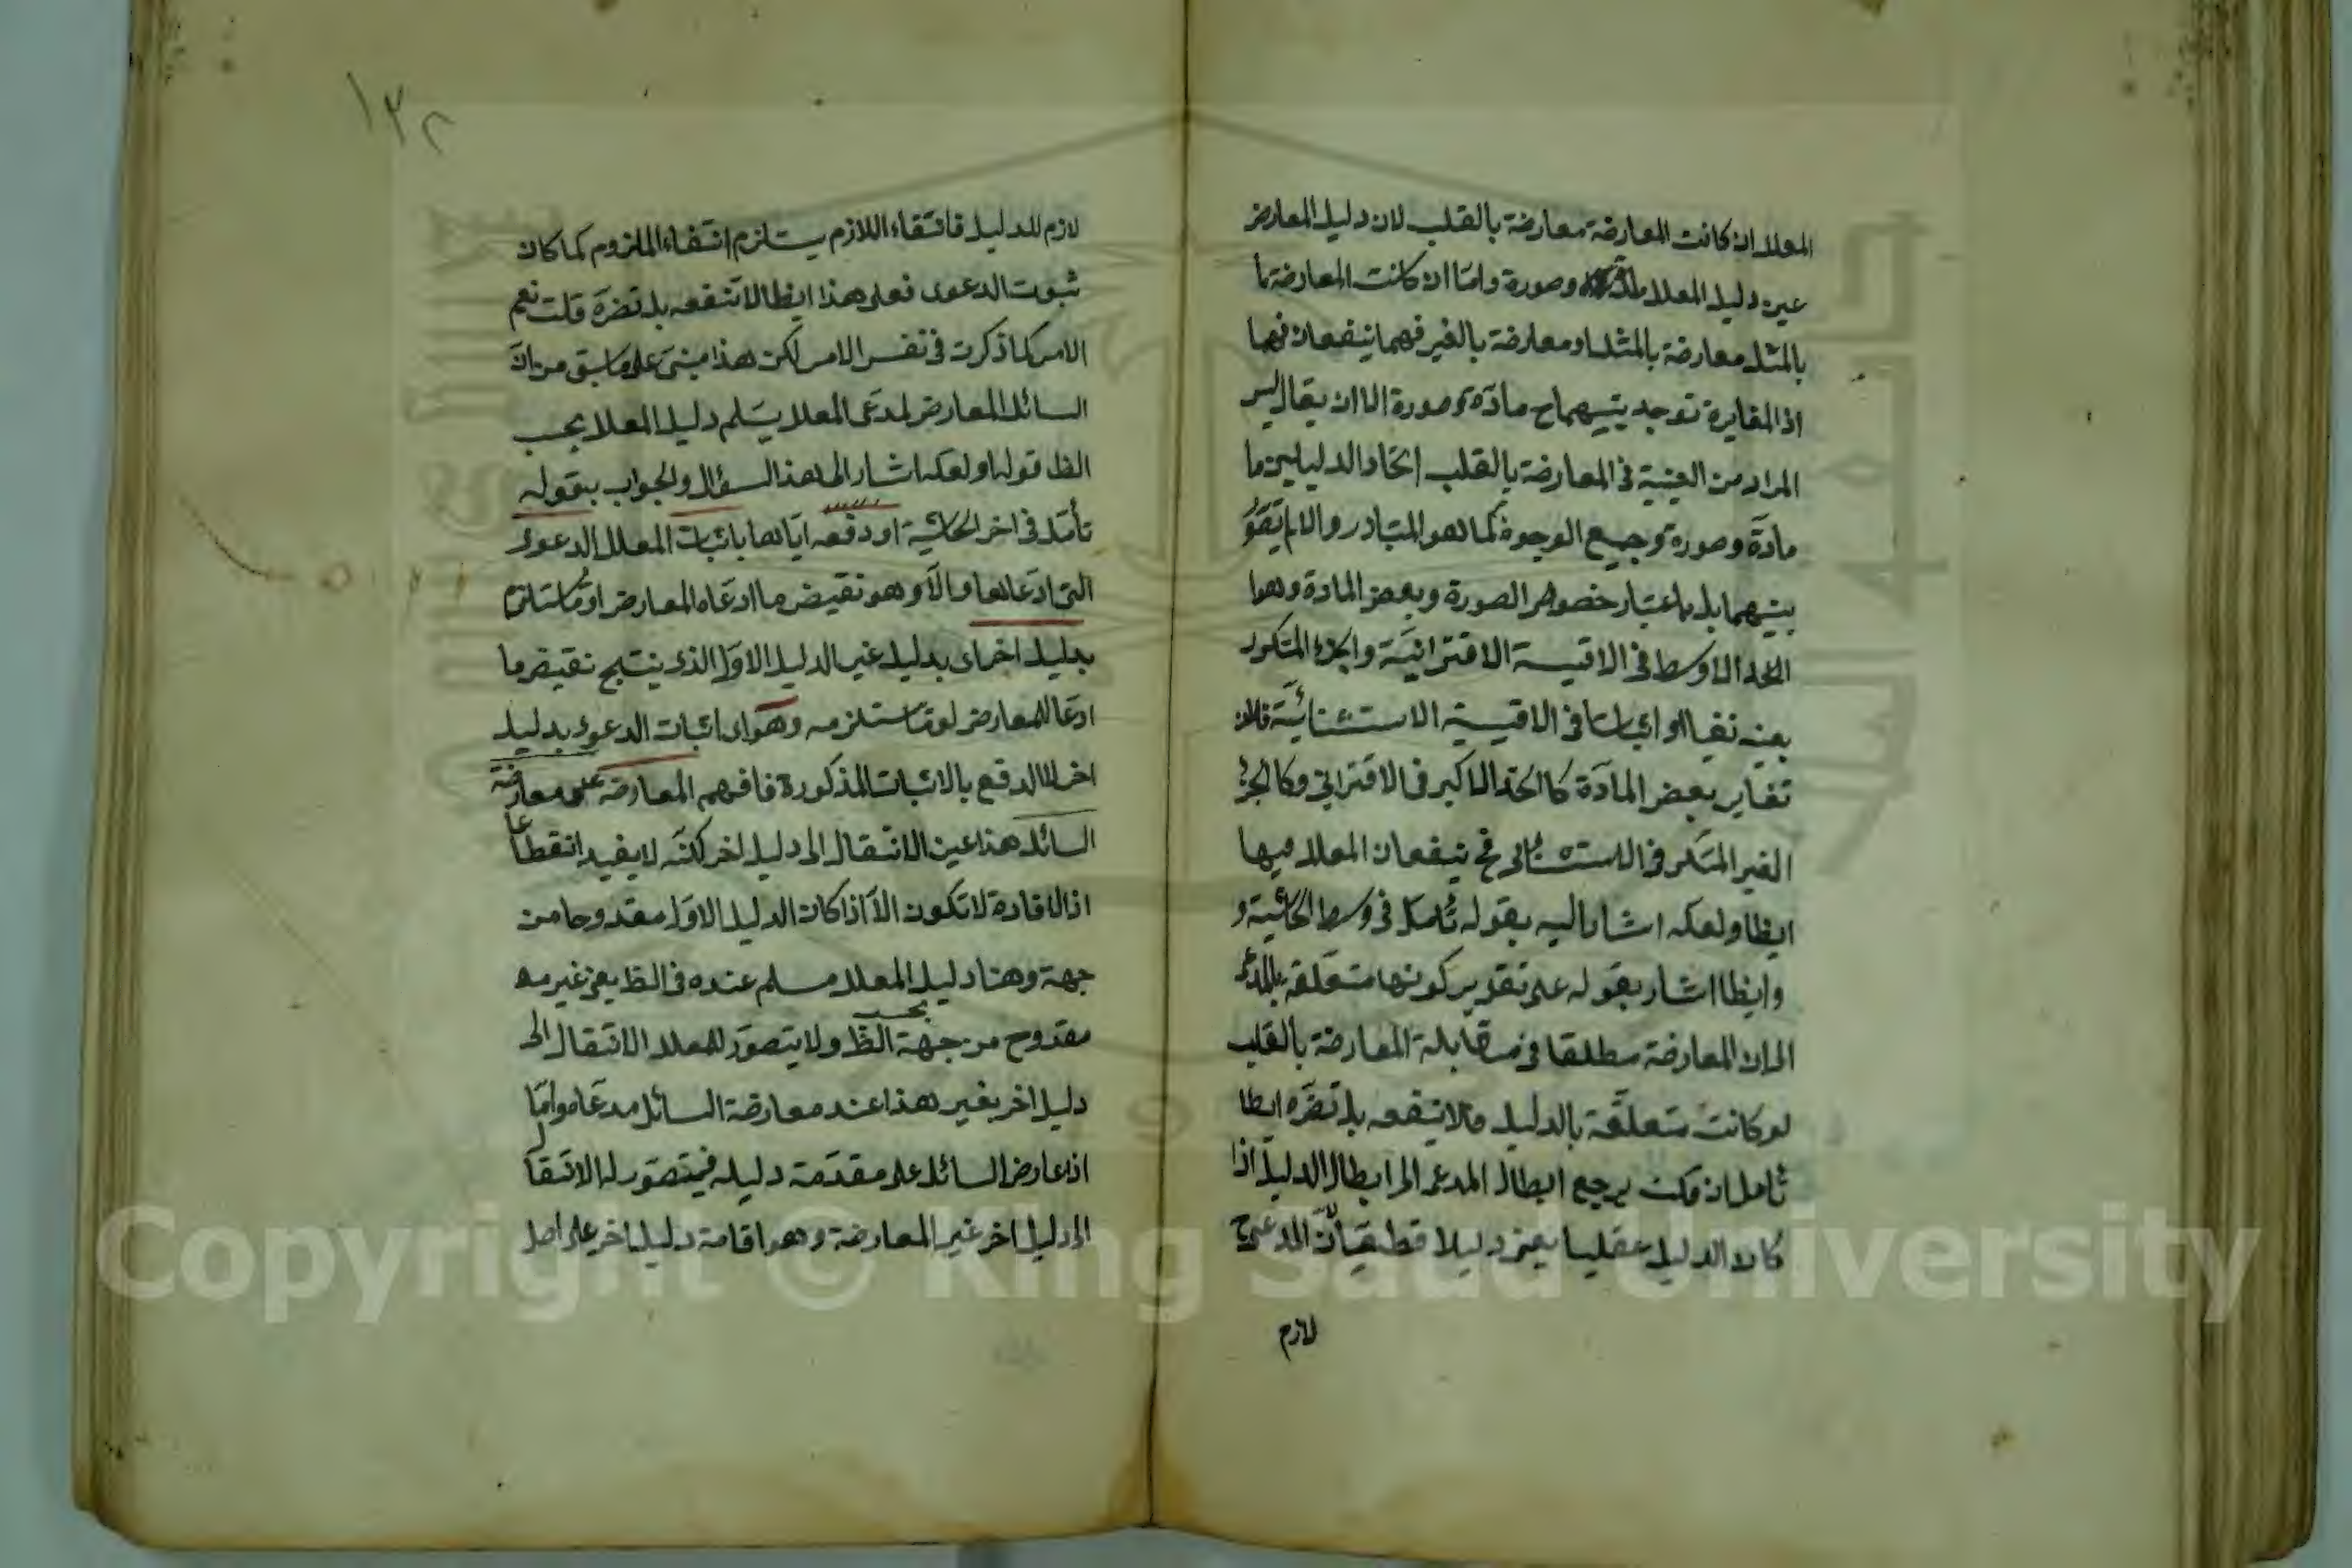 المعلل ان كانت المعارضة معارضة بالقلب لان دليل المعارض
عين دليل المعلل وصورة واما ان كانت المعارضة
بالمثل معارضة بالمثل او معارضة بالغير فهما ينفعان فيها
اذ المغايرة توجد بينهما ح مادة وصورة الا ان يقال ليس
المراد من العينية في المعارضة بالقلب اتحاد الدليلين
مادة وصورة وجميع الوجوه كما هو المتبادر والا لم
بينهما بل باعتبار خصوص الصورة وبعض المادة وهو
الحد الاوسط في الاقيسة الاقترانية والجزء المتكرر
بعينه نفيا او اثباتا في الاقيسة الاستثنائية فلان
تغاير بعض المادة كالحد الاكبر في الاقتراني وكالجزء
الغير المتكرر في الاستثنائي فح ينفعان المعلل فيها
ايظا ولعله اشار اليه بقوله تأمل في وسط الحاشية و
وايظا اشار بقوله على تقدير كونها متعلقة بالمدعى
الى ان المعارضة مطلقا في مقابلة المعارضة بالقلب
لو كانت متعلقة بالدليل فالا تنفعه بل تضره ايظا
تأمل ان قلت يرجع ابطال المدعى الى ابطال الدليل اذا
كان الدليل عقليا يعني دليلا قطعيا لان المدعى ح
لازم
١٣٢
لازم للدليل فانتفاء اللازم يستلزم انتفاء الملزوم كما كان
ثبوت الدعوى فعلى هذا ايظا لا تنفعه بل تضره قلت نعم
الامر كما ذكرت في نفس الامر لكن هذا مبنى على ما سبق من ان
السائل المعارض لمدعى المعلل يسلم دليل المعلل بحسب
الظ قوله ولعله اشار الى هذا السؤال والجواب بقوله
تأمل في اخر الحاشية او دفعه اياها باثبات المعلل الدعوى
التي ادعاها والا وهو نقيض ما ادعاه المعارض او ما يستلزم
بدليل اخر اي بدليل غير الدليل الاول الذي ينتج نقيض ما
ادعاه المعارض او ما يستلزمه وهو اي اثبات الدعوى بدليل
اخر الا الدفع بالاثبات المذكورة فافهم المعارضة على معارضة
السائل هذا عين الانتقال الى دليل اخر لكنه لا يفيد انقطاعا
اذ الافادة لا تكون الا اذا كان الدليل الاول مقدوحا من
جهة وهنا دليل المعلل مسلم عنده في الظ يعني غير
مقدوح من جهة بحسب الظ ولا يتصور للمعلل الانتقال الى
دليل اخر بغير هذا عند معارضة السائل مدعاه واما
اذا عارض السائل على مقدمة دليله فيتصور له الانتقال
الى دليل اخر غير المعارضة وهو اقامة دليل اخر على اصل
Copyright © King Saud University